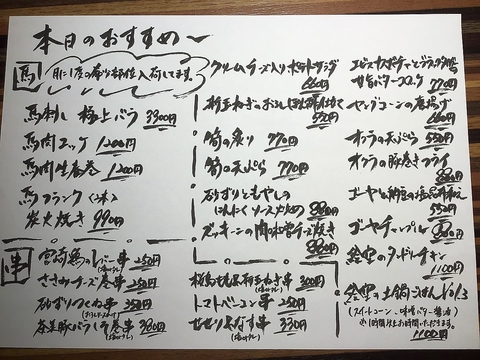 本日のおすすめ〜
馬
月に1度の希少部位入荷してます。
馬刺し 極上バラ 3300円
馬肉ユッケ 1200円
馬肉生春巻 1200円
馬フランク(2本)
炭火焼き 990円
串
宮崎鶏のレバー串 250円
ささみチーズ巻串 250円
砂ずりつくね串 250円
茶美豚バラしそ巻串 380円
クリームチーズ入りポテトサラダ 660円
新玉ねぎの
筍の炙り 770円
筍の天ぷら 770円
砂ずりともやしの
にんにくソース炒め 880円
ズッキーニの肉和雪チーズ焼き 880円
新玉ねぎ串 300円
トマトベーコン串 250円
せせりとなす串 330円
甘旨バターコロッケ 770円
ヤングコーンの唐揚げ 660円
オクラの天ぷら 550円
オクラの豚巻きフライ 880円
ゴーヤと 550円
ゴーヤチャンプル
絵空のタンドリーチキン 1100円
絵空の土鍋ごはん Vol.3
(スイートコーン・味噌バター醤油)
1100円